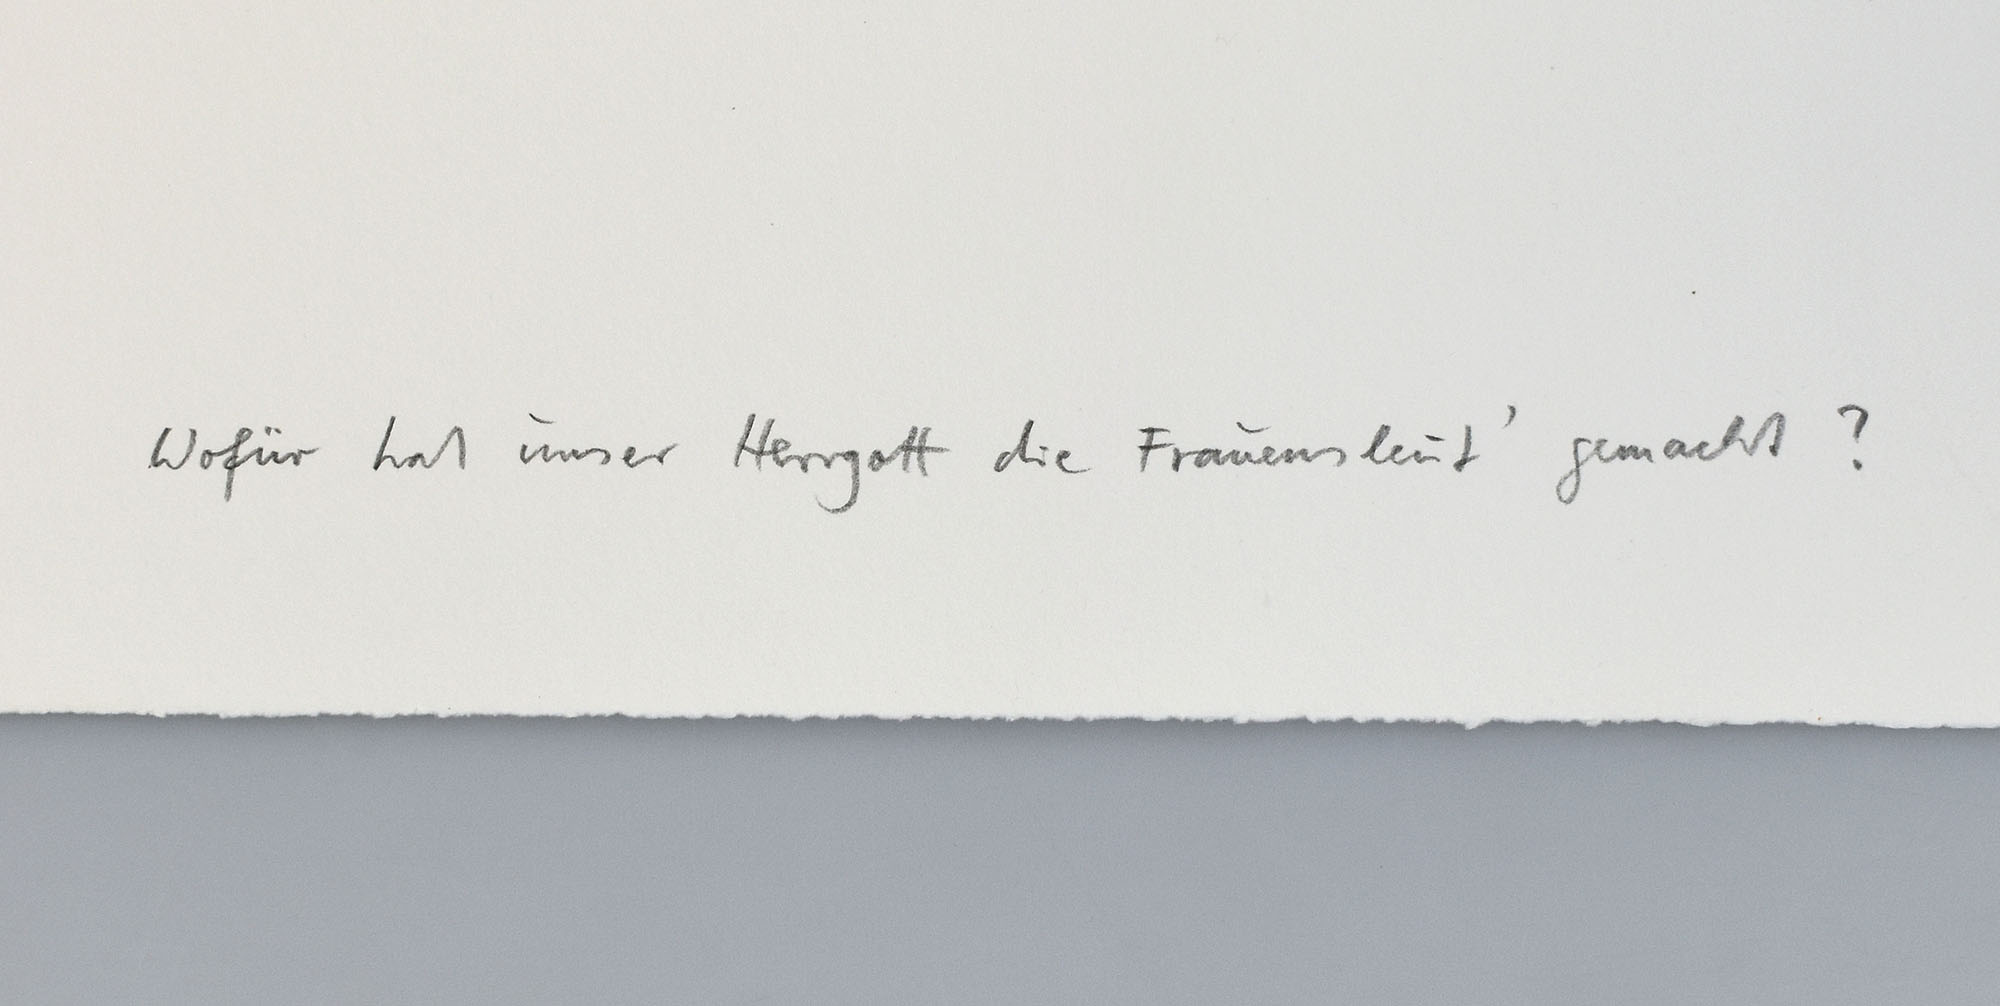 Wofür hat unser Herrgott die Frauensleut' gemacht?